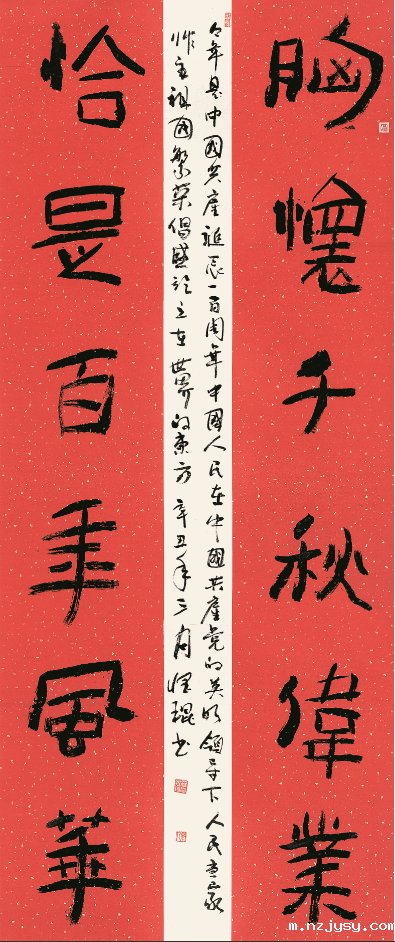 胸懷千秋偉業
恰是百年風華
今年是中國共產誕辰一百周年中國人民在中國共產党的英明領导下人民当家
作主祖國繁荣倡盛屹立在世界的东方 辛丑年三月 恒琨书
m.nzjysy.com